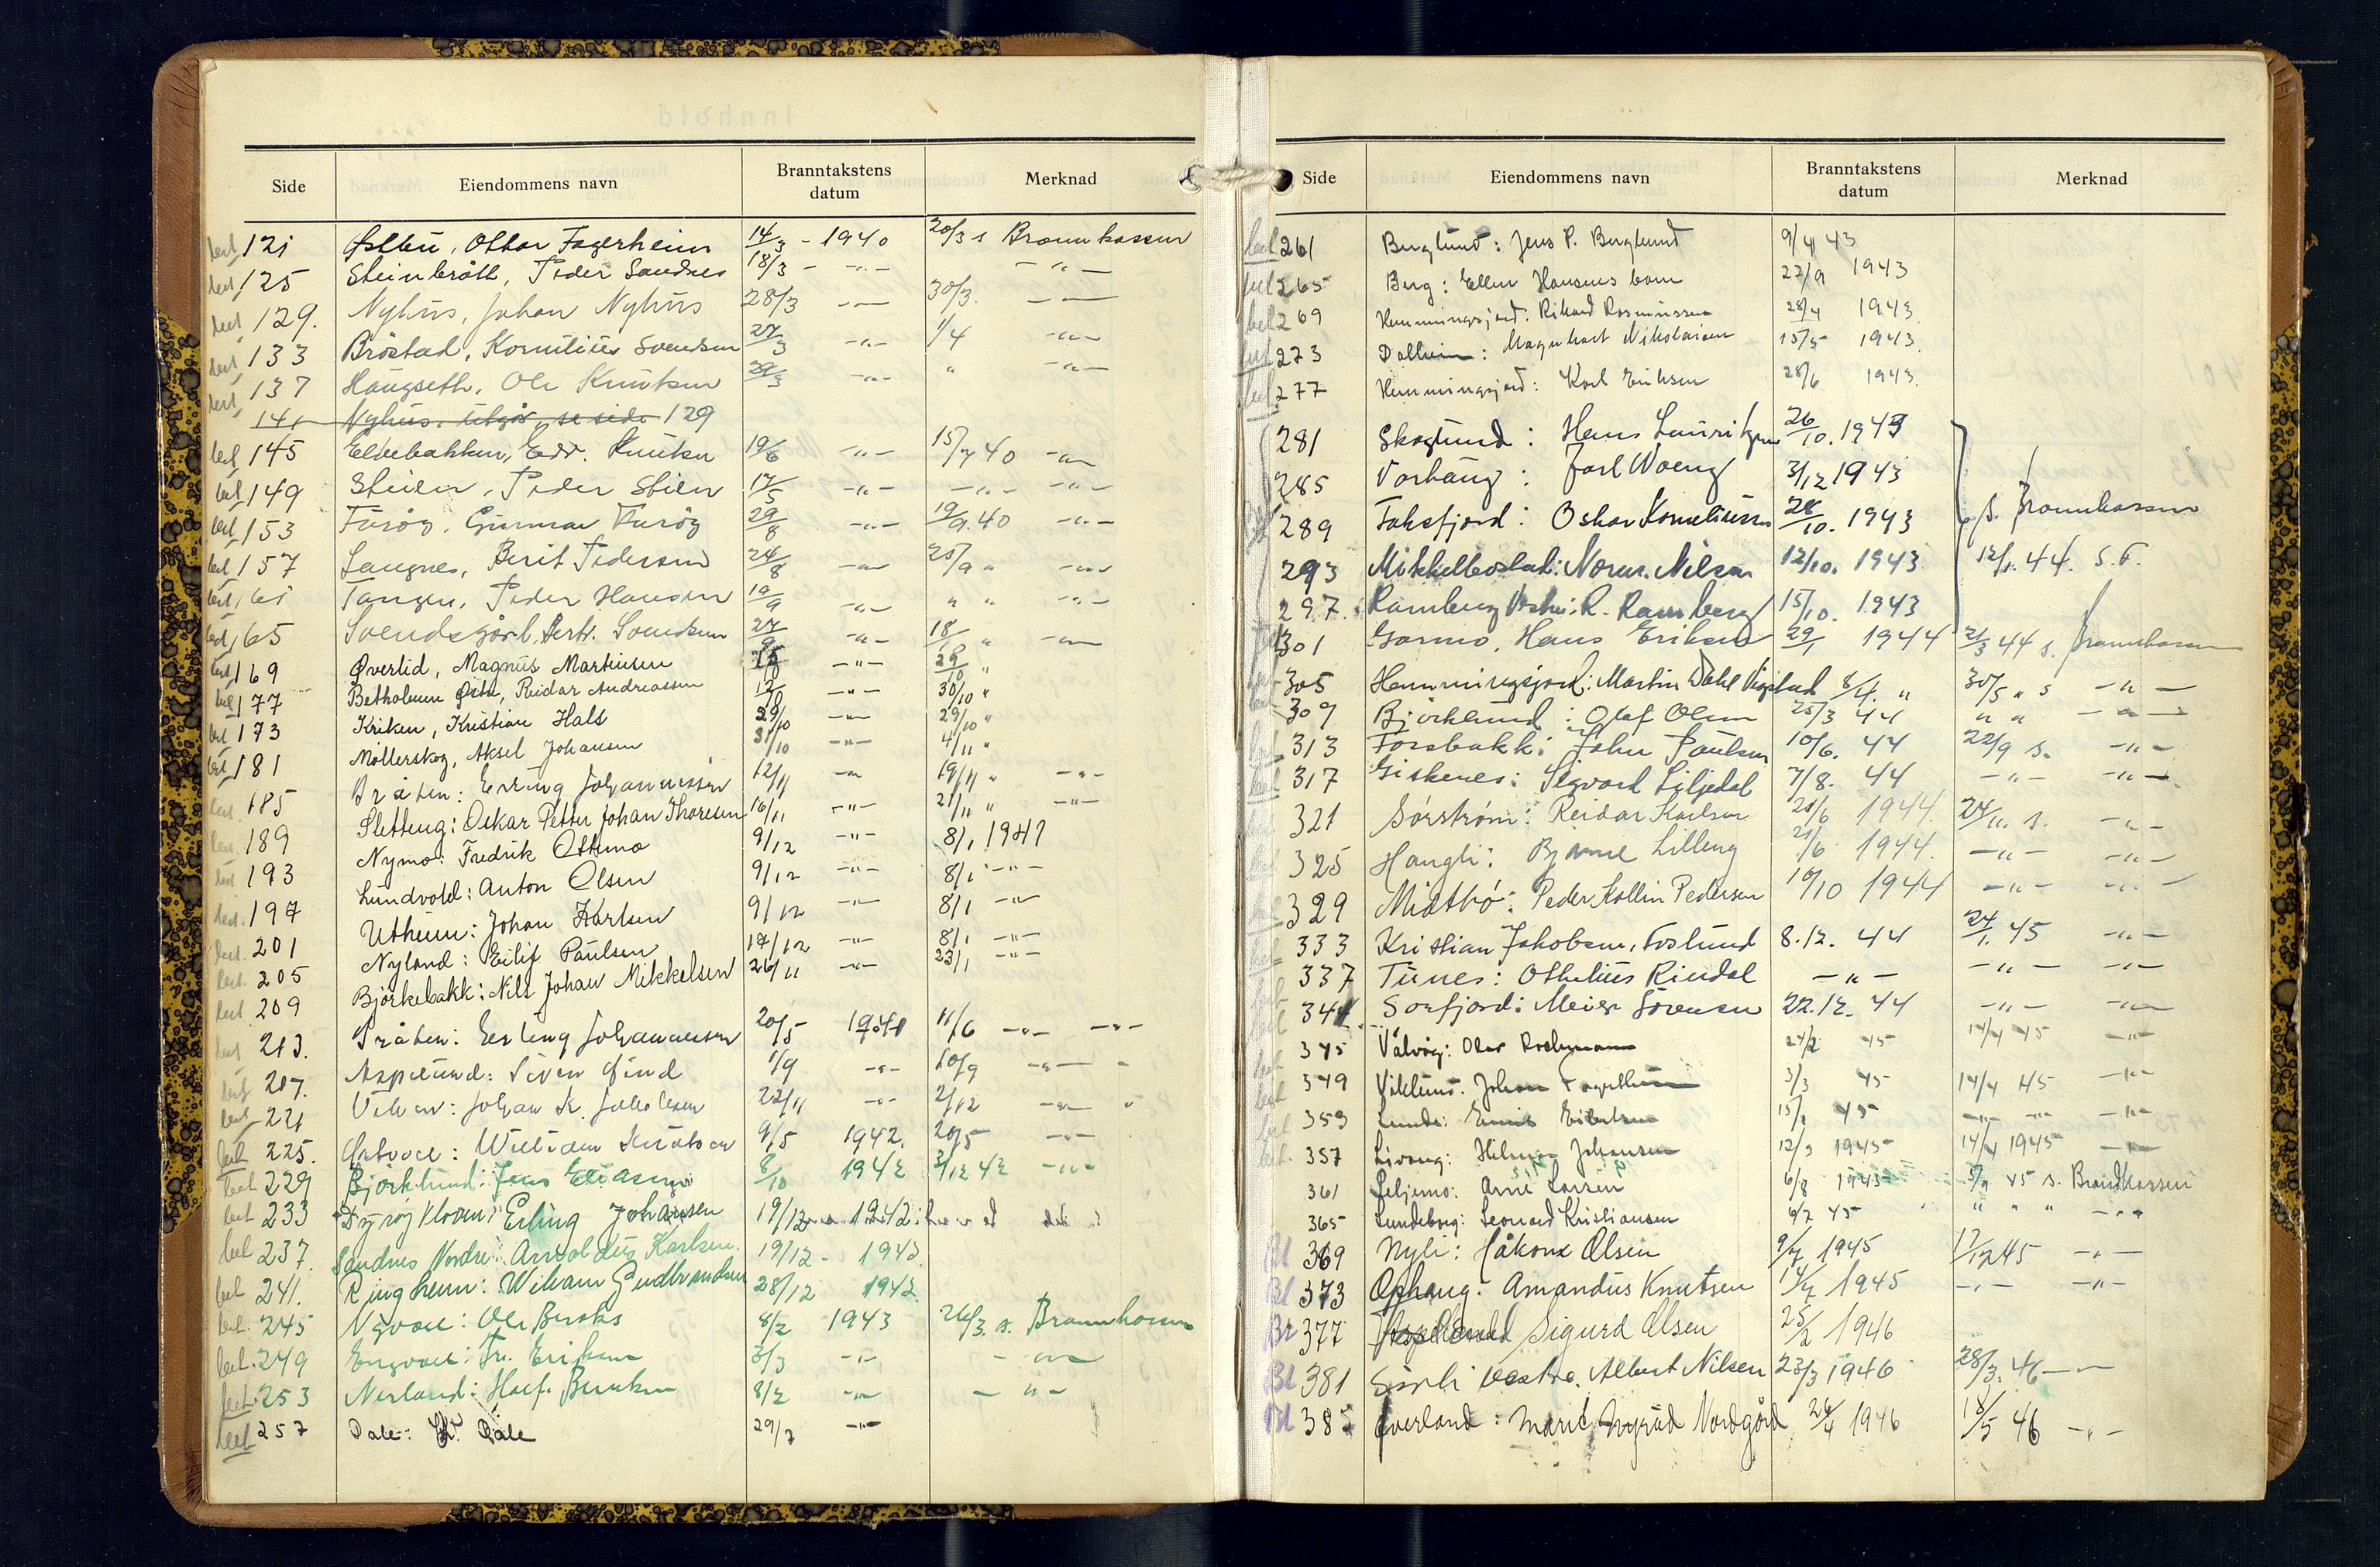 Side Eiendommens navn Branntakstens datum Merknad
121 Østbu, Ottar Fagerheim 14/3 - 1940 20/3 s Brannkassen
125 Steinbrått, Peder Sandnes 18/3 - -"- -"-
129. Nyhus, Johan Nyhus 28/3 -"- 30/3. -"-
133 Bröstad, Kornelius Svendsen 27/3 -"- 1/4 -"-
137 Haugseth, Ole Knutsen 29/3 -"- " -"-
141 Nyhus. utgår, se side 129
145 Elvebakken, Edv. Knutsen 19/6 -"- 15/7 40 -"-
149 Steilen, Peder Stilen 17/5 -"- -"- -"-
153 Furöy, Gunnar Furöy 29/8 -"- 19/9.40 -"-
157 Langnes, Berit Pedersen 24/8 -"- 25/9 " -"-
161 Tangen, Peder Hansen 19/9 -"- " " -"-
165 Svendsgård, Bert. Svendsen 27/9 -"- 18/10 " -"-
169 Øverlid, Magnus Martinsen -"- 29/10 "
177 Betholmen Østre, Reidar Andreassen 12/10 -"- 30/10 "
173 Kriken, Kristian Hals 29/10 -"- 29/10 "
181 Möllerskog, Aksel Johansen 31/10 -"- 4/11 "
185 Bråten: Erling Johannessen 12/11 -"- 19/11 " -"-
189 Sletteng: Oskar Petter Johan Thoresen 16/11 -"- 21/11 " -"-
193 Nymo: Fredrik Ottemo 9/12 -"- 8/1 1941
197 Lundvold: Anton Olsen 9/12 -"- 8/1 -"-
201 Utheim: Johan Karlsen 9/12 -"- 8/1 -"-
205 Nyland: Eilif Paulsen 17/12 -"- 8/1 -"-
209 Björkebakk: Nils Johan Mikkelsen 26/11 -"- 23/1 -"-
213. Bråten: Erling Johannessen 20/5 1941 11/6 -"- -"-
217. Asplund: Sivert Lind 1/9 -"- 10/9 -"-
221 Viken: Johan K. Jakobsen 22/11 -"- 2/12 -"- "
225. William Knutsen 9/5 1942. 20/5 -"-
229 Björklund: Jens Eliassen 8/10 1942 3/12 42 -"-
233 Dyröy Kloven: Erling Johansen 19/12 1942
237. Sandnes Nordre: Arnoldus Karlsen. 19/12 - 1942
241. Ringheim: William Gudbrandsen 28/12 1942.
245 Nyvoll: Ole 8/2 1943 26/3. s. Brannkassen
249 Engvoll: Fr. Eriksen 3/3 -"- -"-
253 Nerland: Hoef. 8/2 -"- -"-
257 Dale: Dale 29/7 -"-
Side Eiendommens navn Branntakstens datum Merknad
261 Berglund: Jens P. Berglund 9/4 43
265 Berg: Ellen Hansens barn 22/9 1943
269 Hemmingsjord: Rikard Rasmussen 28/4 1943
273 Dalheim: Magnhart Nikolaisen 15/5 1943
277 Hemmingsjord: Karl Eriksen 28/6 1943.
281 Skoglund: Hans Lauritzen 26/10. 1943
285 Varhaug: Jarl Woeng 3/12 1943
289 Faksfjord: Oskar Korneliussen 28/10. 1943 s. Brannkassen
293 Mikkelbostad: Norm. Nilsen 12/10. 1943 12/1. 44. S.F.
297. Ramberg Vestre: R. Ramberg 15/10. 1943
301 Garmo, Hans Eriksen 29/1 1944 21/3 44 s. Brannkassen
305 Hemmingsjord: Martin Dahl Vigstad 8/4. " 30/5 " s -"-
309 Björklund: Olaf Olsen 25/3 44 " " -"-
313 Forsbakk: John Paulsen 10/6. 44 22/9 s. -"-
317 Giskenes: Sigvard Liljedal 7/8. 44 -"- -"-
321 Sörström: Reidar Karlsen 21/6 1944. 24/11. s. -"-
325 Haugli: Bjarne Lilleng 21/6 1944. -"- -"-
329 Midtbö: Peder Kollin Pedersen 10/10 1944 -"- -"-
333 Kristian Jakobsen, Foslund 8.12. 44 24/1. 45 -"-
337 Tunes: Othelius Rindal -"- -"- -"-
341. Sorfjord: Meier Sörensen 22.12. 44 -"- -"-
345 Vålvåg: Olav 24/2 45 14/4 45 -"-
349 Viklund: Johan 3/3 45 14/4 45 -"-
353 Lunde: 15/2 45 -"- -"- -"-
357 Livang: Hilmar Johansen 12/3 1945 14/4 1945 -"-
361 Seljemo: Arne Larsen 6/8 1945 3/9 45 s. Brandkassen
365 Lundeborg: Leonard Kristiansen 6/7 45 " " " -"-
369 Nyli: Håkon Olsen 9/7 1945 17/12 45 -"-
373 Ophaug. Amandus Knutsen 14/7 1945 -"- -"-
377 Sigurd Olsen 25/2 1946
381 Sörli vestre. Albert Nilsen 23/3 1946 28/3. 46 -"-
385 Överland: Marit Nordgård 26/4 1946 18/5 46 -"-